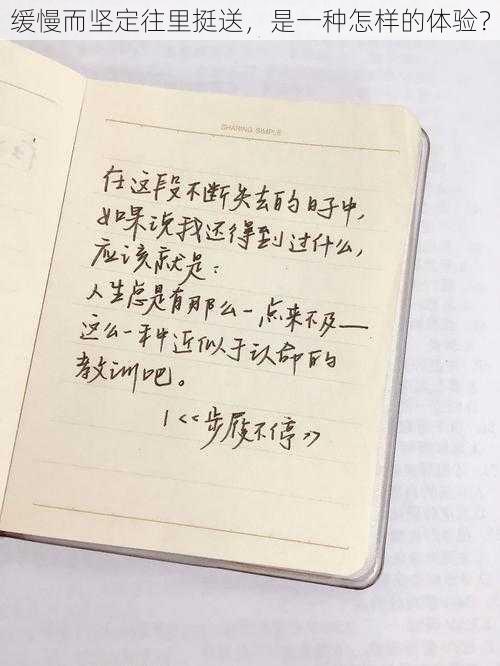 缓慢而坚定往里挺送，是一种怎样的体验？
SHARING SIMPLE
在这段不断失去的日子中，
如果说我还得到过什么，
应该就是：
人生总是有那么一点来不及——
这么一种近似于认命的
教训吧。
/《步履不停》